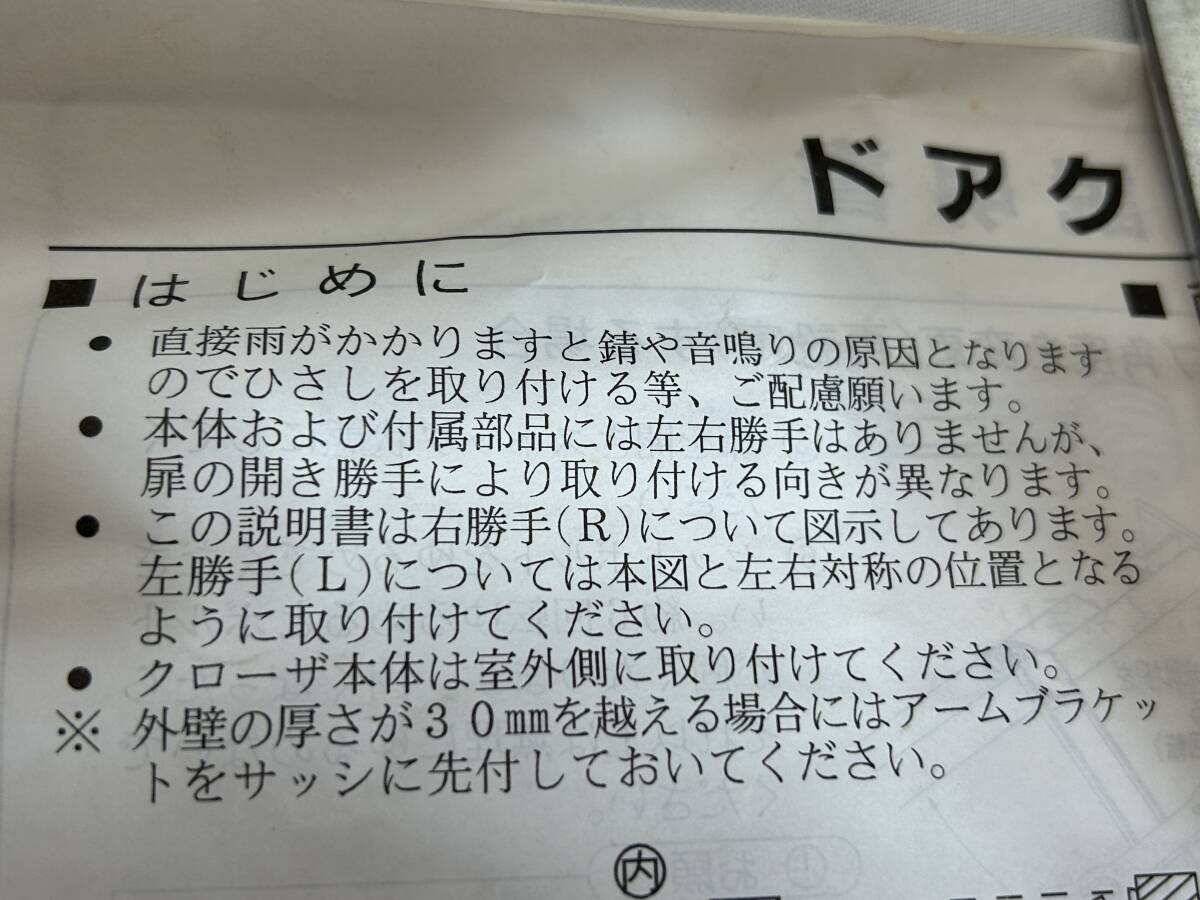 ドアク
■ はじめに
● 直接雨がかかりますと錆や音鳴りの原因となります
のでひさしを取り付ける等、ご配慮願います。
● 本体および付属部品には左右勝手はありませんが、
扉の開き勝手により取り付ける向きが異なります。
● この説明書は右勝手(R)について図示してあります。
左勝手(L)については本図と左右対称の位置となる
ように取り付けてください。
● クローザ本体は室外側に取り付けてください。
※ 外壁の厚さが30mmを越える場合にはアームブラケッ
トをサッシに先付しておいてください。
■
内